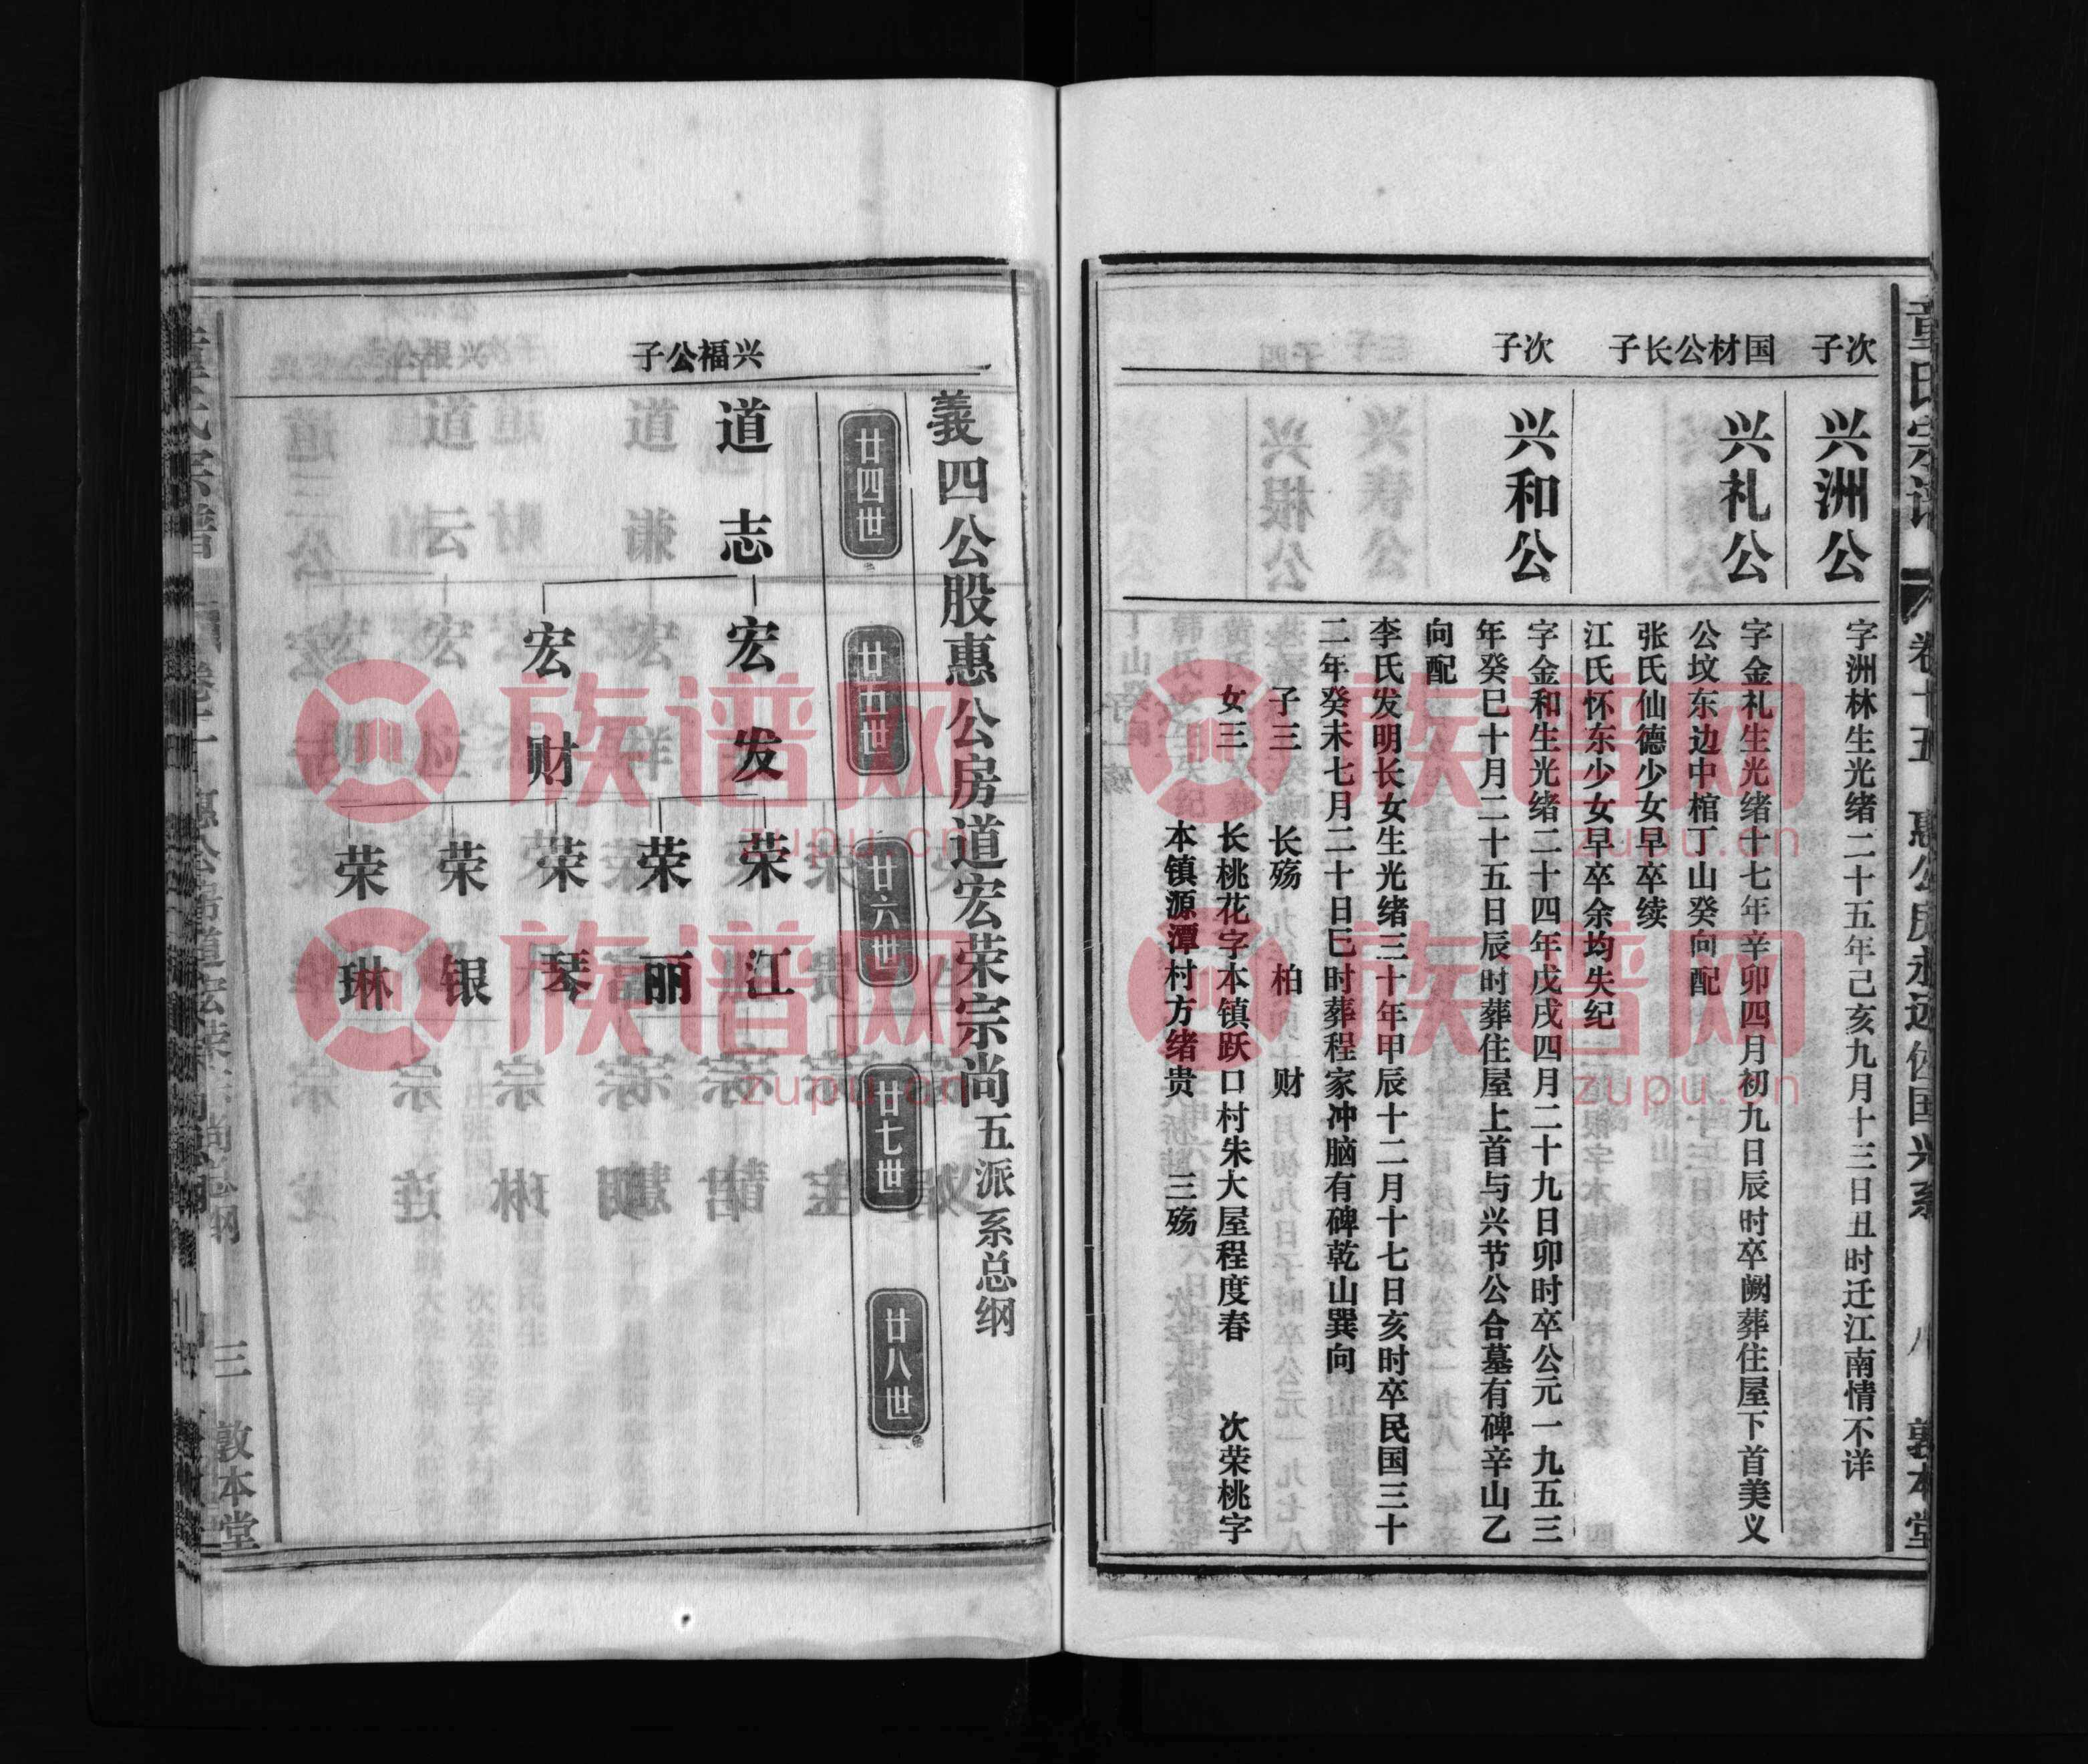 童氏宗谱 卷十五 惠公房永远依国兴系 八 敦本堂
次子
兴洲公
字洲林生光绪二十五年己亥九月十三日丑时迁江南情不详
国材公长子
兴礼公
字金礼生光绪十七年辛卯四月初九日辰时卒阙葬住屋下首美义
公坟东边中棺丁山癸向配
张氏仙德少女早卒续
江氏怀东少女早卒余均失纪
次子
兴和公
字金和生光绪二十四年戊戌四月二十九日卯时卒公元一九五三
年癸巳十月二十五日辰时葬住屋上首与兴节公合墓有碑辛山乙
向配
李氏发明长女生光绪三十年甲辰十二月十七日亥时卒民国三十
二年癸未七月二十日巳时葬程家冲脑有碑乾山巽向
子三 长殇 柏 财
女三 长桃花字本镇跃口村朱大屋程度春 次荣桃字
本镇源潭村方绪贵 三殇
義四公股惠公房道宏荣宗尚五派系总纲
廿四世
廿五世
廿六世
廿七世
廿八世
兴福公子
道志
宏发
宏财
荣江
荣丽
荣琴
荣银
荣琳
三 敦本堂
族谱网
zupu.cn
族谱网
zupu.cn
族谱网
zupu.cn
族谱网
zupu.cn